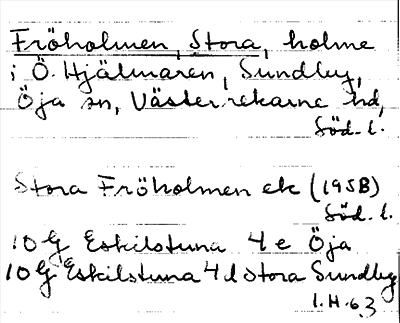 Fröholmen, Stora, holme
i Ö. Hjälmaren, Sundby,
Öja sn, Västerrekarne hd,
Söd. l.
Stora Fröholmen ek (1958)
Söd. l.
10G Eskilstuna 4e Öja
10G Eskilstuna 4d Stora Sundby
1.H.6.3